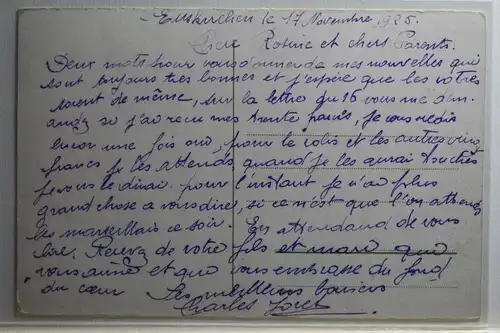 Euskirchen le 17 Novembre 1925.
Rosine et chers Parents
Deux mots pour vous donner de mes nouvelles qui
sont toujours très bonnes et j'espère que les votres
soient de même, sur la lettre du 15 vous me dem
andez si j'ai recu mes trente francs, je vous redis
encor une fois oui, pour le colis et les autres vingt
francs je les attends quand je les aurai touchés
je vous le dirai. pour l'instant je n'ai plus
grand chose a vous dire, si ce n'est que l'on attends
les marseillais ce soir. En attendand de vous
lire. Recevez de votre fils et mari qui
vous aime et que vous embrasse du fond
du cœur Ses meilleurs baisers
Charles